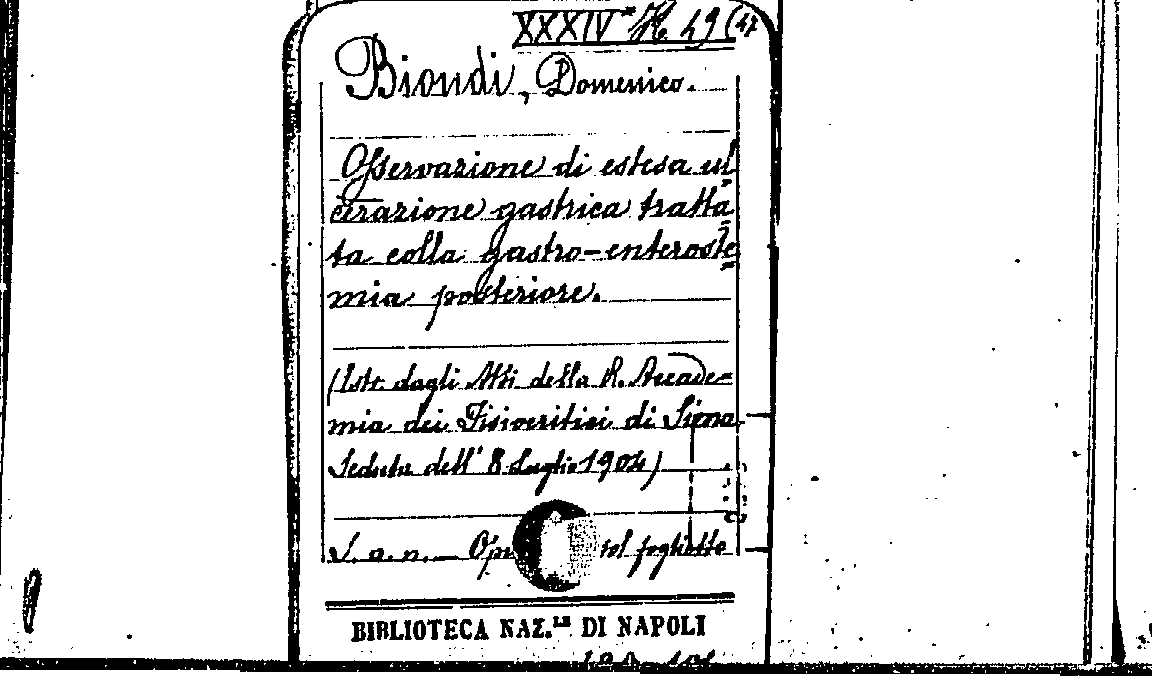 XXXIV H 49 (47
Biondi, Domenico.
Osservazione di estesa ul
cerazione gastrica tratta
ta colla gastro-enterosto
mia posteriore.
(Estr. dagli Atti della R. Accade-
mia dei Fisiocritici di Siena
Seduta dell' 8 Luglio 1904)
S. a. n. — Op fogliette
BIBLIOTECA NAZ.LE DI NAPOLI